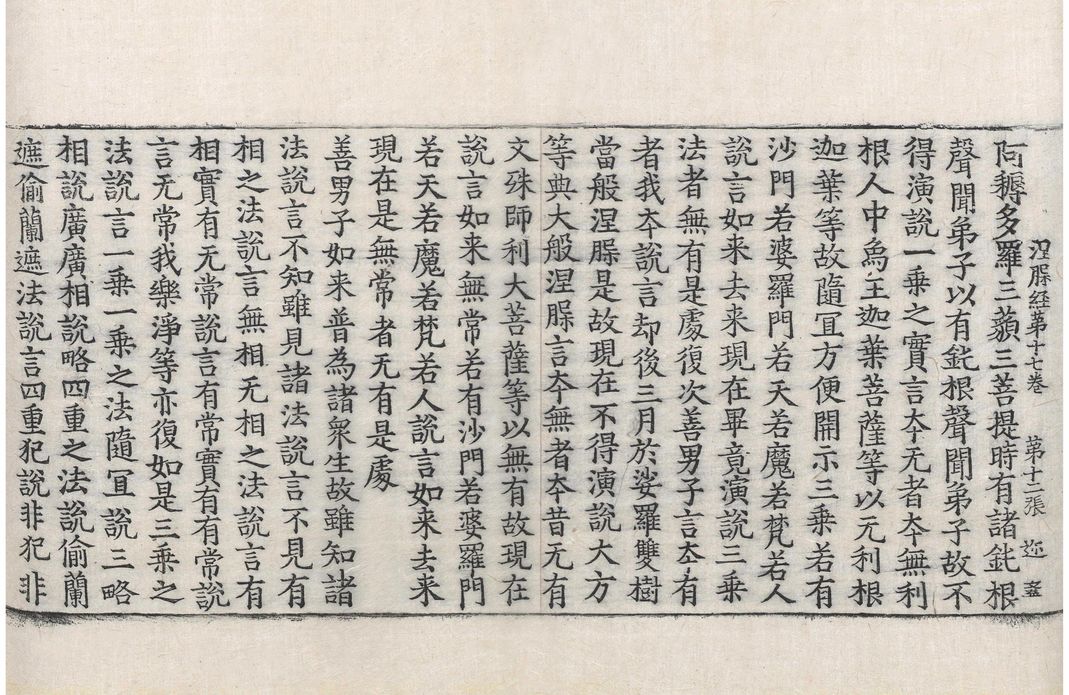 涅槃経苐十七卷 苐十二張 迩
阿耨多羅三藐三菩提時有諸鈍根
聲聞弟子以有鈍根聲聞弟子故不
得演說一乗之實言夲无者夲無利
根人中為主迦葉菩薩等以无利根
迦葉等故隨冝方便開示三乗若有
沙門若婆羅門若天若魔若梵若人
說言如来去来現在畢竟演說三乗
法者無有是處復次善男子言夲有
者我夲說言却後三月於娑羅雙樹
當般涅槃是故現在不得演說大方
等典大般涅槃言夲無者夲昔无有
文殊師利大菩薩等以無有故現在
說言如来無常若有沙門若婆羅門
若天若魔若梵若人說言如来去来
現在是無常者无有是處
善男子如来普為諸衆生故雖知諸
法說言不知雖見諸法說言不見有
相之法說言無相无相之法說言有
相實有无常說言有常實有有常說
言无常我樂淨等亦復如是三乗之
法說言一乗一乗之法隨冝說三略
相說廣廣相說略四重之法說偷蘭
遮偷蘭遮法說言四重犯說非犯非